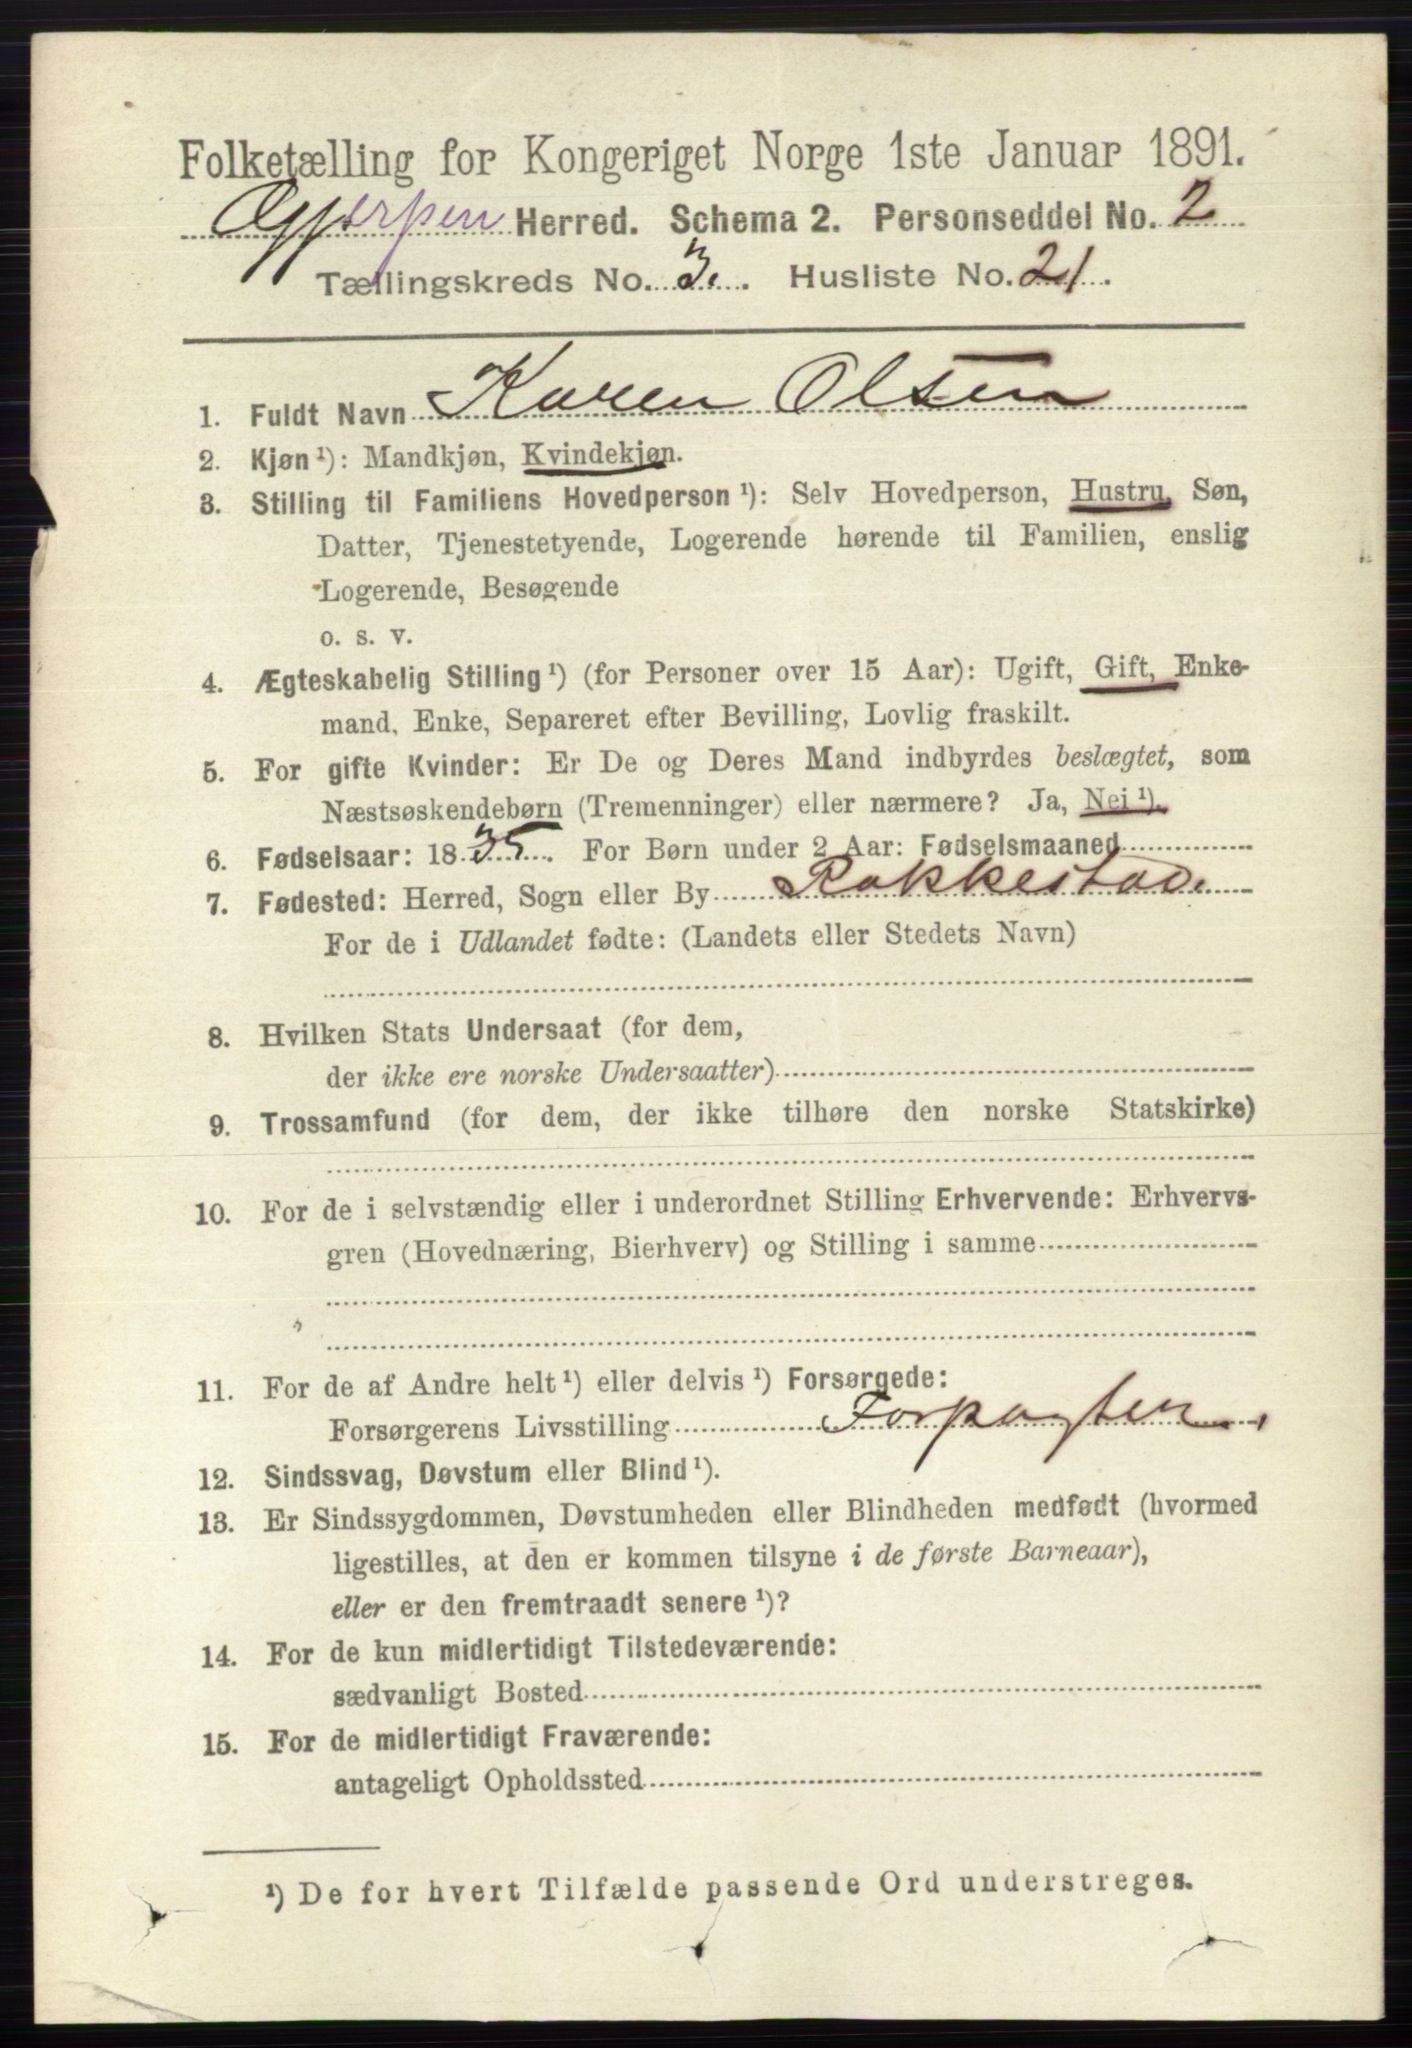 Folketælling for Kongeriget Norge 1ste Januar 1891.
Gjerpen Herred. Schema 2. Personseddel No. 2
Tællingskreds No. 3. Husliste No. 21.
1. Fuldt Navn Karen Olsen
2. Kjøn ¹): Mandkjøn, Kvindekjøn.
3. Stilling til Familiens Hovedperson ¹): Selv Hovedperson, Hustru, Søn,
Datter, Tjenestetyende, Logerende hørende til Familien, enslig
Logerende, Besøgende
o. s. v.
4. Ægteskabelig Stilling ¹) (for Personer over 15 Aar): Ugift, Gift, Enke-
mand, Enke, Separeret efter Bevilling, Lovlig fraskilt.
5. For gifte Kvinder: Er De og Deres Mand indbyrdes beslægtet, som
Næstsøskendebørn (Tremenninger) eller nærmere? Ja, Nei ¹).
6. Fødselsaar: 1835. For Børn under 2 Aar: Fødselsmaaned
7. Fødested: Herred, Sogn eller By Rakkestad.
For de i Udlandet fødte: (Landets eller Stedets Navn)
8. Hvilken Stats Undersaat (for dem,
der ikke ere norske Undersaatter)
9. Trossamfund (for dem, der ikke tilhøre den norske Statskirke)
10. For de i selvstændig eller i underordnet Stilling Erhvervende: Erhvervs-
gren (Hovednæring, Bierhverv) og Stilling i samme
11. For de af Andre helt ¹) eller delvis ¹) Forsørgede:
Forsørgerens Livsstilling Forpagter.
12. Sindssvag, Døvstum eller Blind ¹).
13. Er Sindssygdommen, Døvstumheden eller Blindheden medfødt (hvormed
ligestilles, at den er kommen tilsyne i de første Barneaar),
eller er den fremtraadt senere ¹)?
14. For de kun midlertidigt Tilstedeværende:
sædvanligt Bosted
15. For de midlertidigt Fraværende:
antageligt Opholdssted
¹) De for hvert Tilfælde passende Ord understreges.